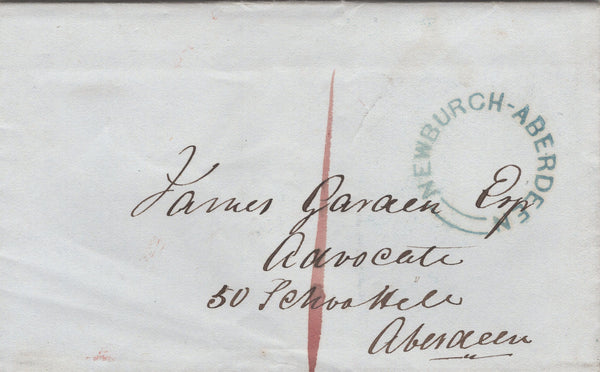 NEWBURGH-ABERDEEN
James Garden Esqr
Advocate
50 Schoolhill
Aberdeen